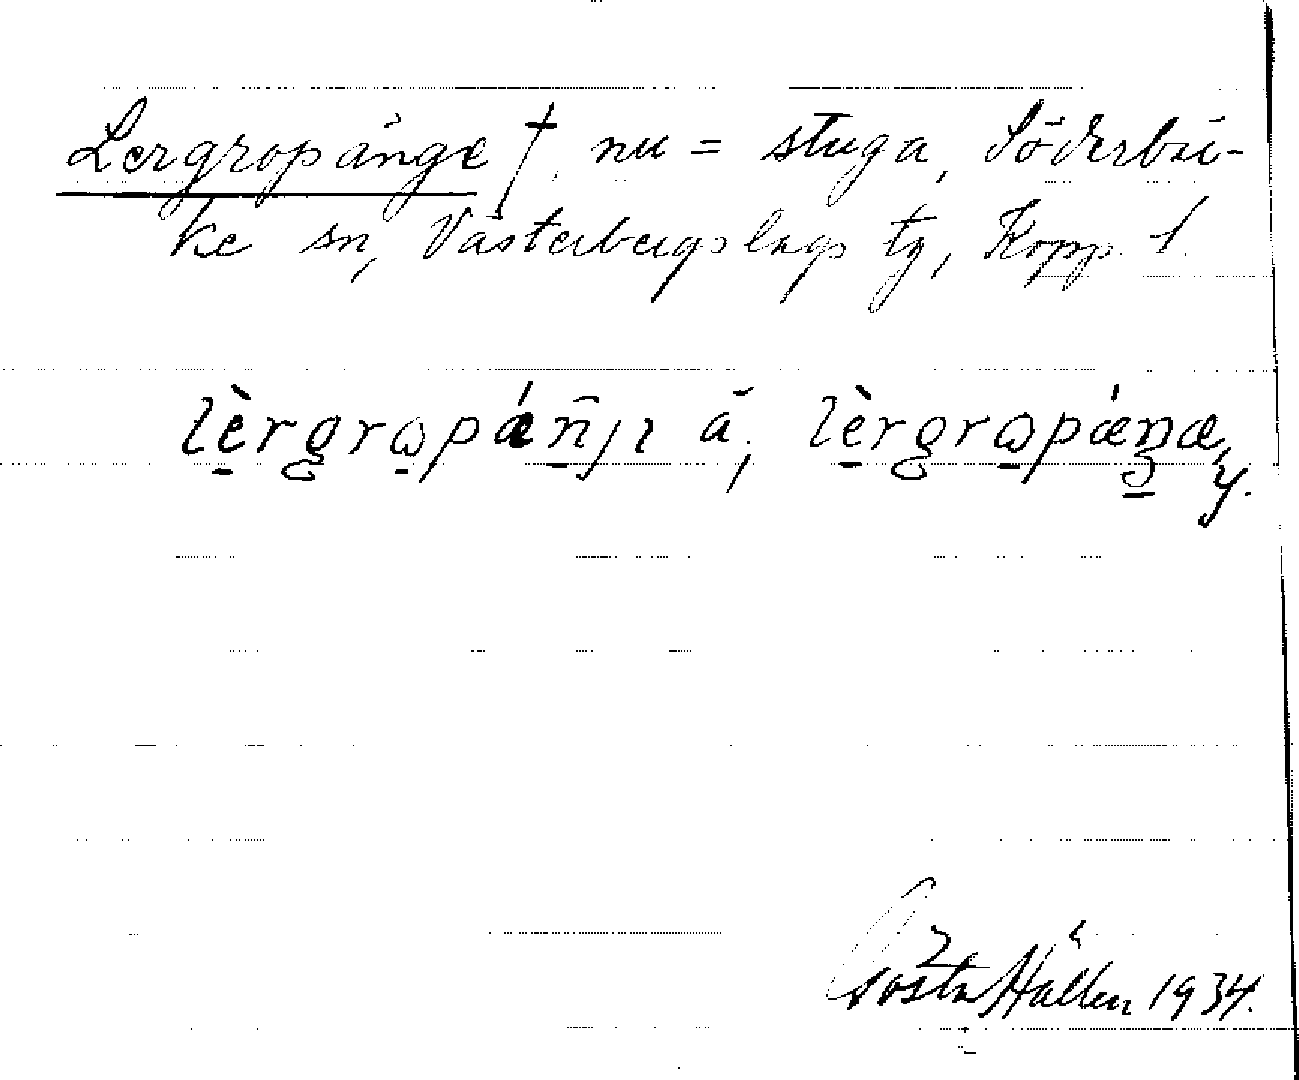 Lergropänge †, nu = stuga, Söderbär-
ke sn, Västerbergslags tg, Kopp. l.
lèrgrɷpǽn̄ȷı ä̆; lèrgrɷpǽŋæ, y.
Gösta Hallén 1934.